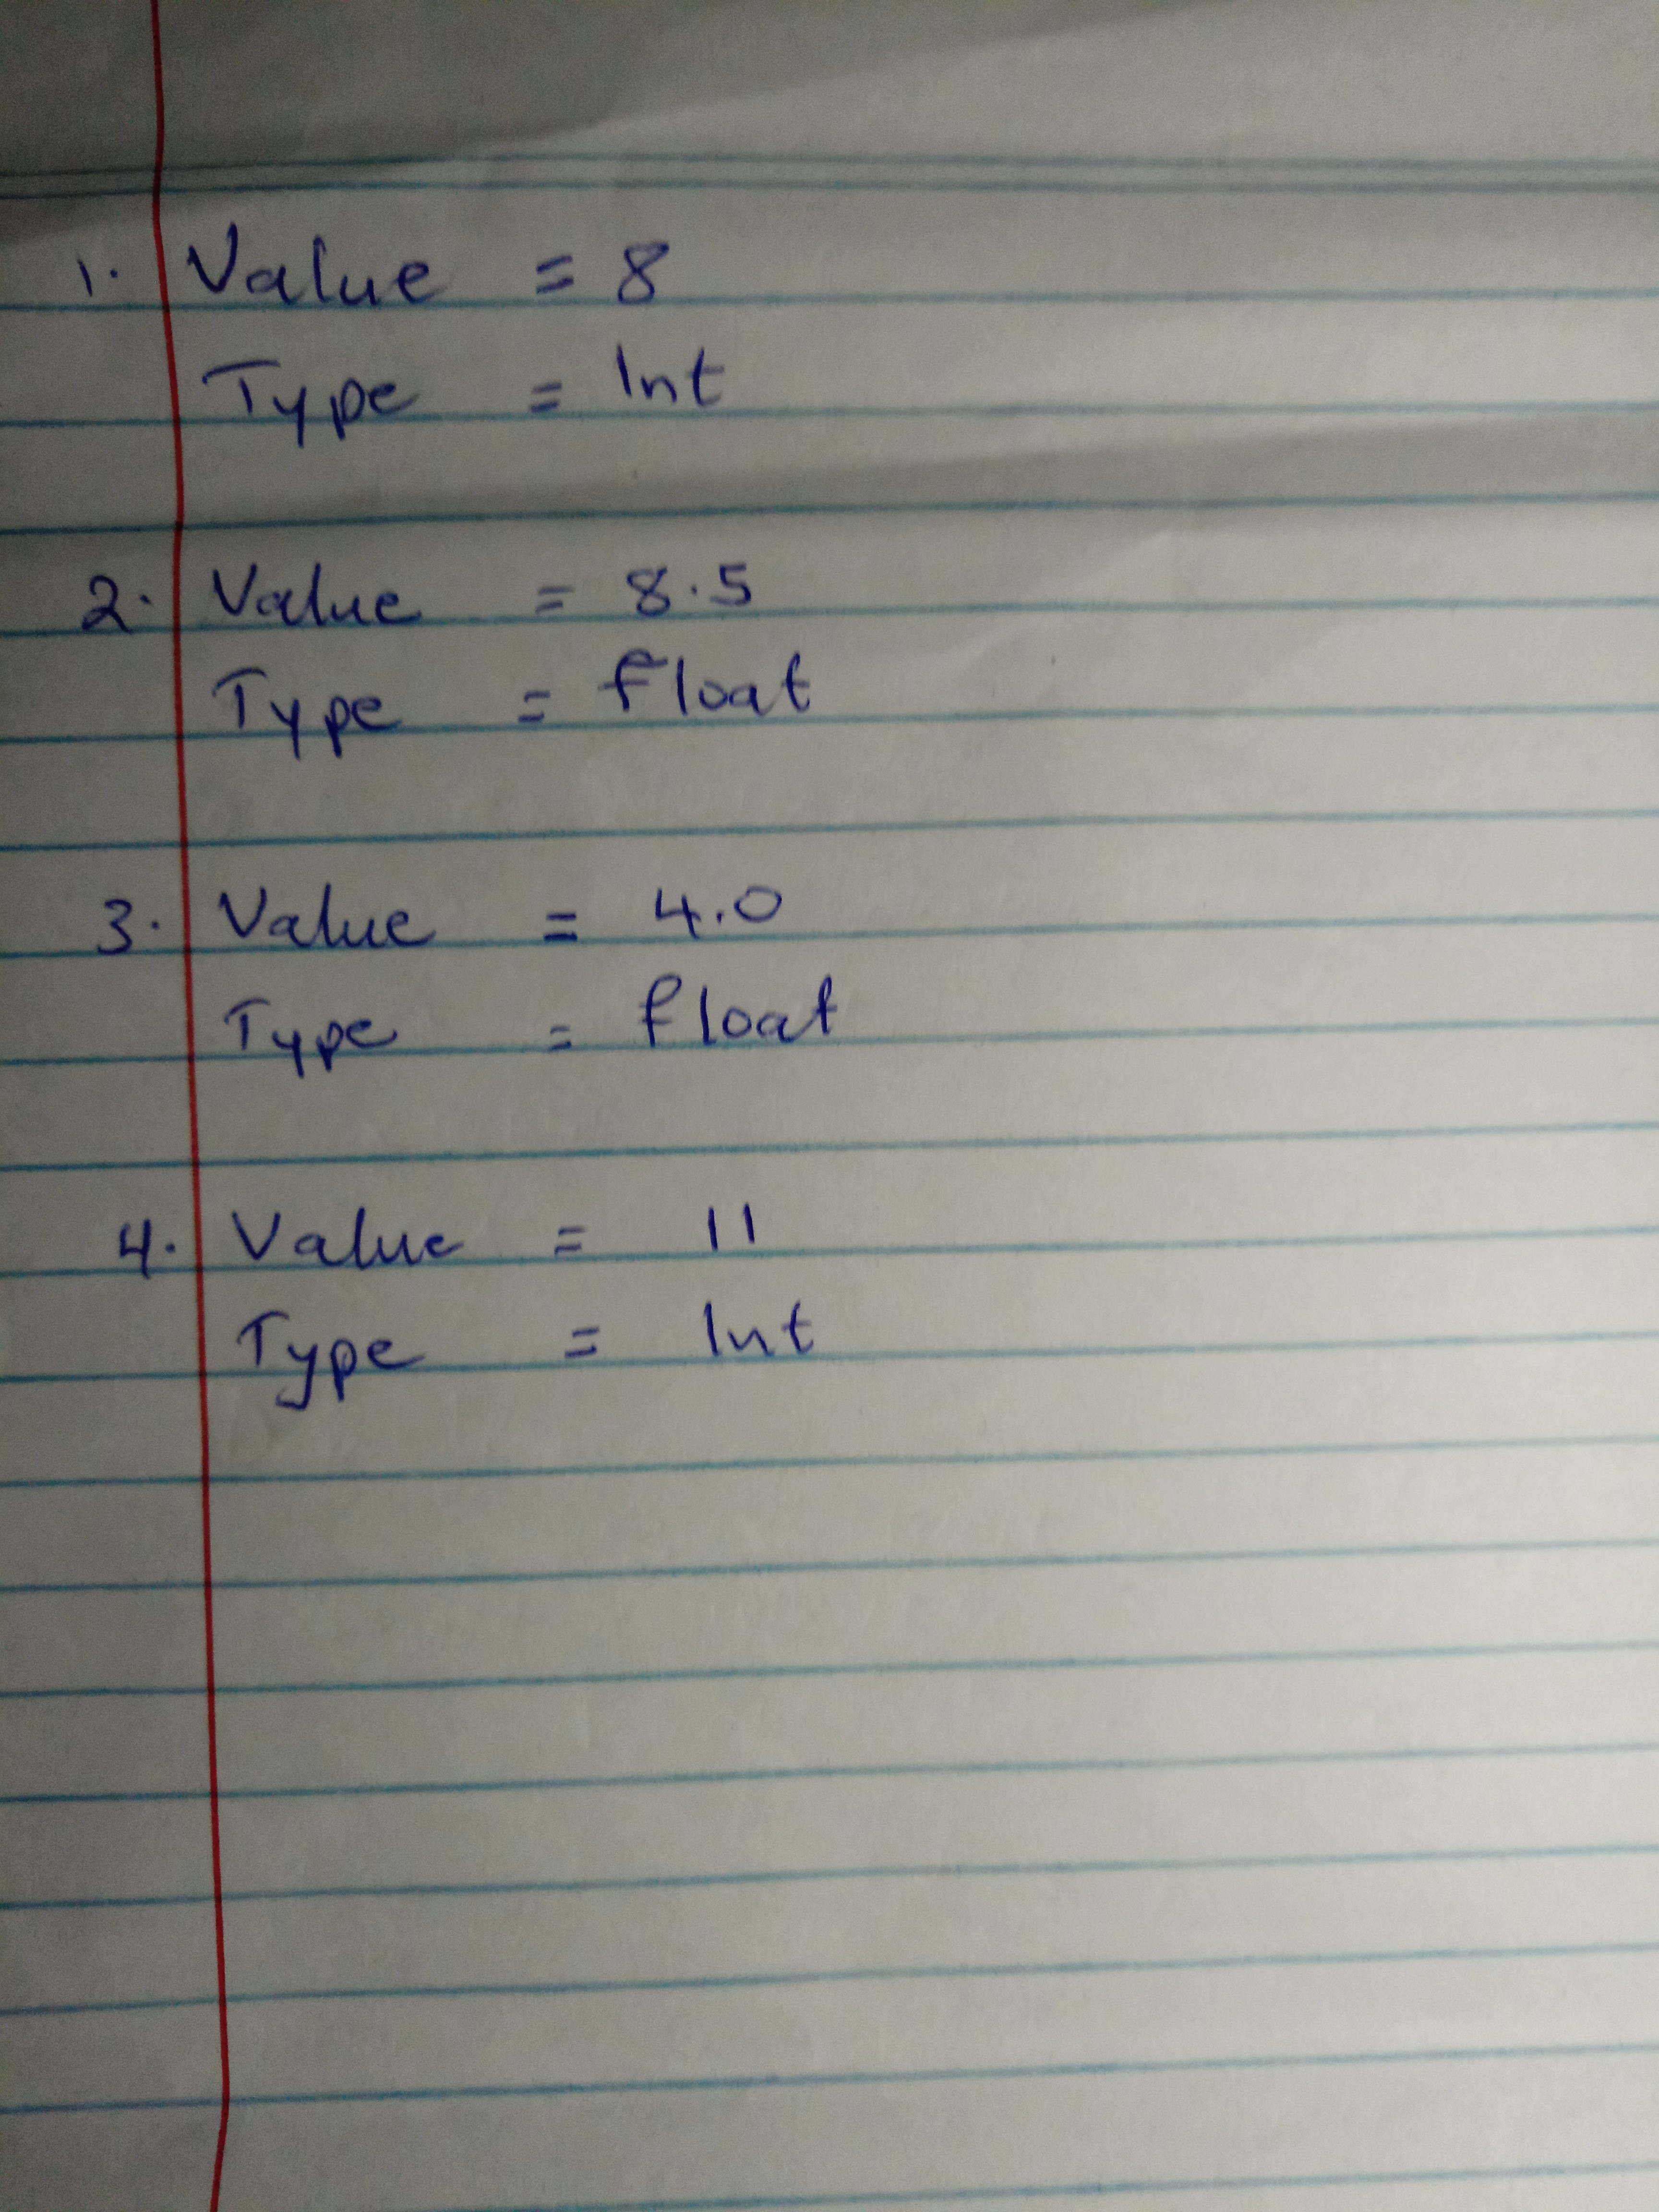 1. Value = 8
Type = Int
2. Value = 8.5
Type = float
3. Value = 4.0
Type = float
4. Value = 11
Type = Int